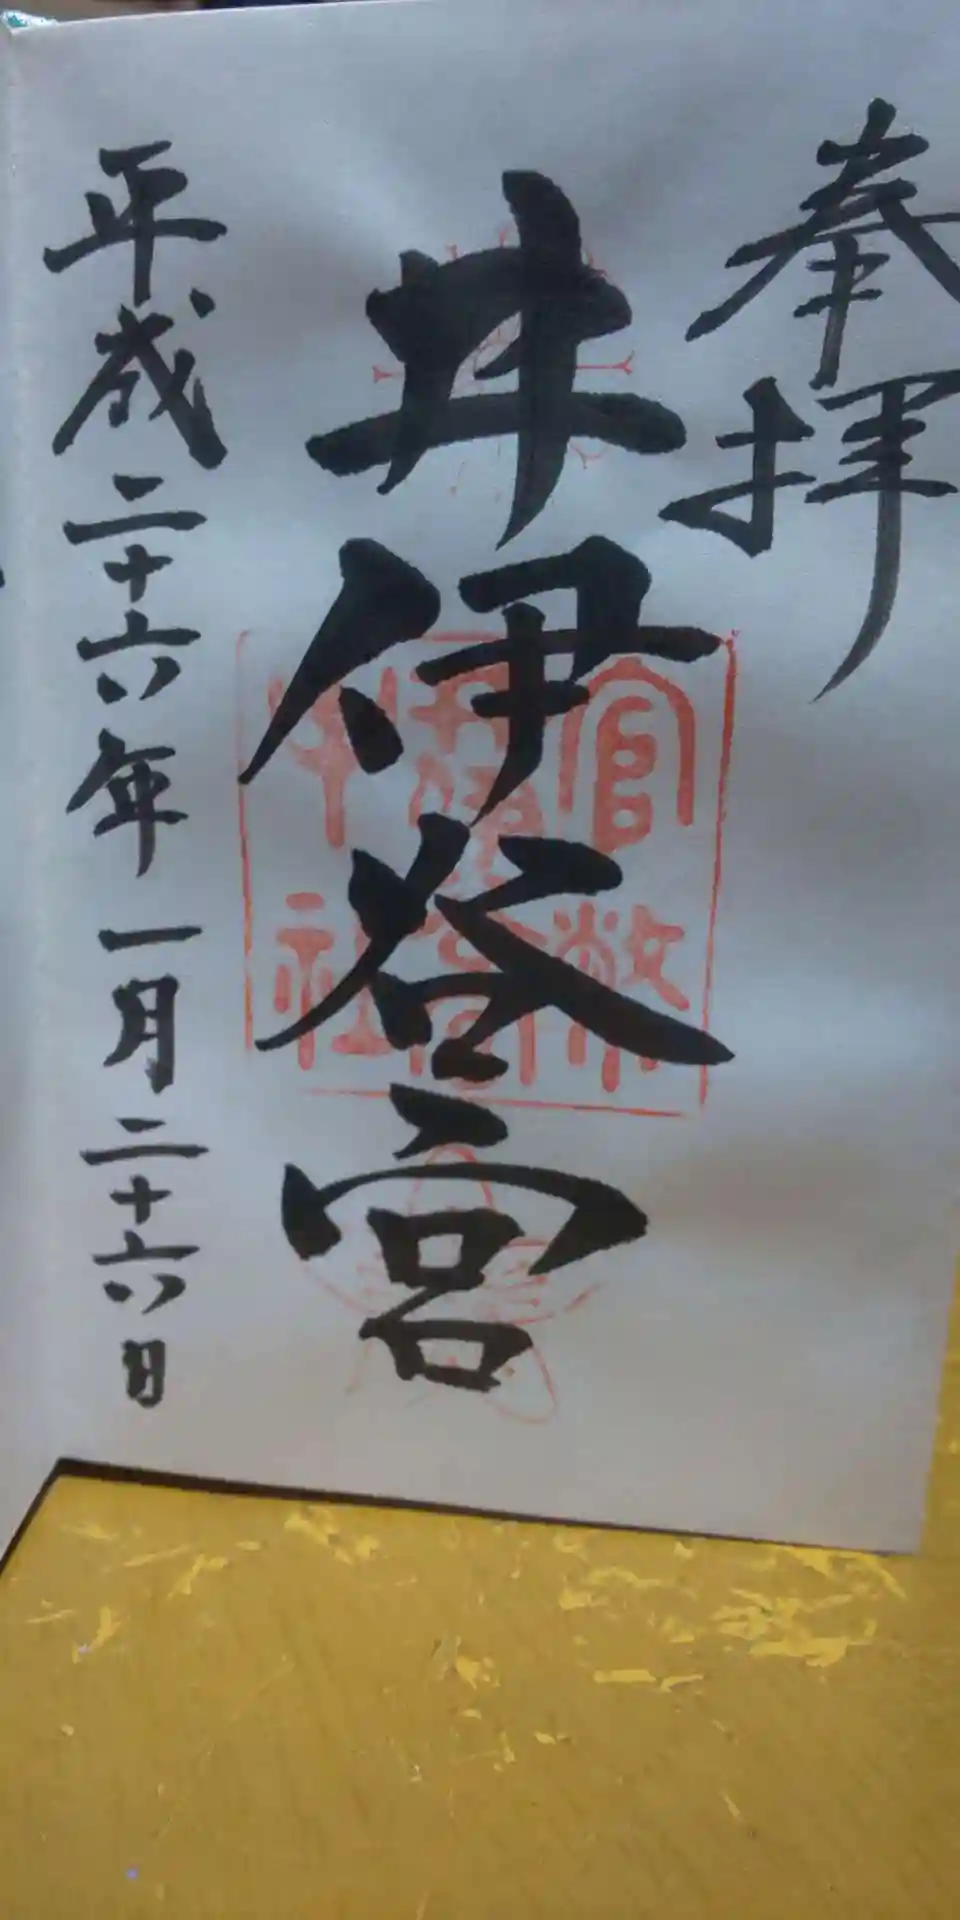 奉拝
井伊谷宮
官幣
中社
平成二十六年一月二十六日